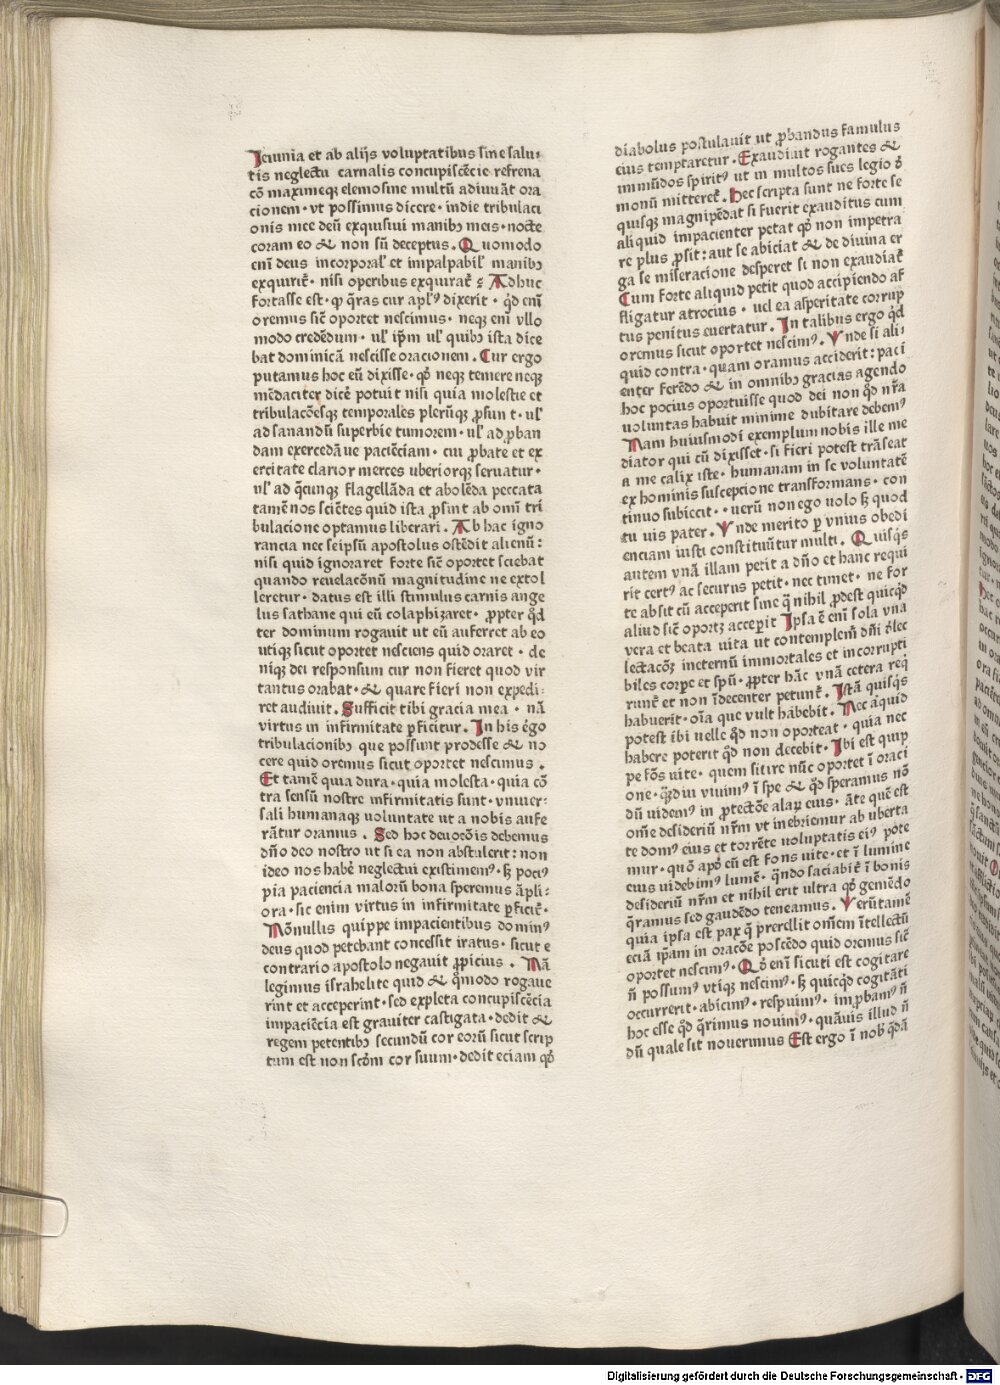 Iciunia et ab alijs voluptatibus sine salu⸗
tis neglectu carnalis concupiscēcie refrena
cō maximeqȝ elemosine multū adiuuāt ora
cionem · vt possimus dicere · indie tribulaci
onis mee deū exquisiui manibꝫ meis · nocte
coram eo & non sū deceptus. Quomodo
eni deus incorporal' et impalpabil' manibꝫ
exquirit̄ · nisi operibus exquirat̄ ⸮ Adhuc
fortasse est · ꝙ q̄ras cur apl'ꝰ dixerit · qd̄ eni
oremus sic̄ oportet nescimus · neqȝ eni vllo
modo credēdum · ul' ip̄m ul' quibꝫ ista dice
bat dominicā nescisse oracionem. Cur ergo
putamus hoc eū dixisse · qꝫ neqȝ temere neqȝ
mēdaciter dicē potuit nisi quia molestie et
tribulacōesqȝ temporales plerūqȝ ꝓsun t · ul'
ad sanandū superbie tumorem · ul' ad ꝓban
dam exercedā ue paciēciam · cui ꝓbate et ex
ercitate clarior merces uberiorqȝ seruatur ·
ul' ad q̄cunqȝ flagellāda et abolēda peccata
tamē nos sciētes quid ista ꝓsint ab omī tri
bulacione optamus liberari. Ab hac igno
rancia nec seipsū apostolus ostēdit alienū :
nisi quid ignoraret forte sic̄ oportet sciebat
quando reuelacōnū magnitudine ne extol
leretur · datus est illi stimulus carnis ange
lus sathane qui eū colaphizaret · ꝓpter qd̄
ter dominum rogauit ut eū auferret ab eo
utiqȝ sicut oportet nesciens quid oraret · de
niqȝ dei responsum cur non fieret quod vir
tantus orabat · & quare fieri non expedi⸗
ret audiuit. Sufficit tibi gracia mea · nā
virtus in infirmitate ꝑficitur. In his ergo
tribulacionibꝫ que possunt prodesse & no
cere quid oremus sicut oportet nescimus.
Et tamē quia dura · quia molesta · quia cō
tra sensū nostre infirmitatis sunt · vniuer⸗
sali humanaqȝ voluntate ut a nobis aufe
rātur oramus. Sed hoc deuocōis debemus
dn̄o deo nostro ut si ea non abstulerit : non
ideo nos habē neglectui existimemꝰ · sꝫ pociꝰ
pia paciencia malorū bona speremus āpli⸗
ora · sic enim virtus in infirmitate ꝑficit̄ ·
Nōnullis quippe impacientibus dominꝰ
deus quod petebant concessit iratus · sicut e
contrario apostolo negauit ꝓpicius. Nā
legimus israhelite quid & q̄modo rogaue
rint et acceperint · sed expleta concupiscēcia
impaciēcia est grauiter castigata · dedit &
regem petentibꝫ secundū cor eorū sicut scrip
tum est non scd̄m cor suum · dedit eciam qꝫ
diabolus postulauit ut ꝓbandus famulus
eius temptaretur · Exaudiuit rogantes &
immūdos spiritꝰ ut in multos sues legio d̄
monū mitteret̄. Hec scripta sunt ne forte se
quisqȝ magnipēdat si fuerit exauditus cum
aliquid impacienter petat qꝫ non impetra
re plus ꝓsit : aut se abiciat & de diuina er
ga se miseracione desperet si non exaudiat̄
Cum forte aliquid petit quod accipiendo af
fligatur atrocius · uel ea asperitate corrup
tus penitus euertatur. In talibus ergo qd̄
oremus sicut oportet nescimꝰ. Vnde si ali⸗
quid contra · quam oramus acciderit : paci
enter ferēdo & in omnibꝫ gracias agendo
hoc pocius oportuisse quod dei non qd̄ nr̄a
uoluntas habuit minime dubitare debemꝰ
Nam huiusmodi exemplum nobis ille me
diator qui cū dixisset · si fieri potest trāseat
a me calix iste · humanam in se voluntatē
ex hominis suscepcione transformans · con
tinuo subiecit · · uerū non ego uolo sꝫ quod
tu uis pater. Vnde merito ꝑ vnius obedi
enciam iusti constituūtur multi. Quisq̄s
autem vnā illam petit a dn̄o et hanc requi
rit certꝰ ac securus petit · nec timet · ne for
te absit cū acceperit sine q̄ nihil ꝓdest quicqd̄
aliud sic̄ oportꝫ acceꝑit Ipsa ē eni sola vna
vera et beata uita ut contemplem̄ dn̄i delec
lectacōꝫ ineternū immortales et incorrupti
biles corꝑe et spū · ꝓpter hāc vnā cetera req̄
runt̄ et non īdecenter petunt̄. Istā quisq̄s
habuerit · oīa que vult habebit. Nec aliquid
potest ibi uelle qd̄ non oporteat · quia nec
habere poterit qd̄ non decebit. Ibi est quip
pe fōs uite · quem sitire nūc oportet ī oraci
one · q̄mdiu viuimꝰ ī spe & qd̄ speramus nō
dū uidemꝰ in ꝓtectōe alarꝝ eius · āte quē est
om̄e desideriū nr̄m vt inebriemur ab uberta
te domꝰ eius et torrēte voluptatis eiꝰ pote
mur · quō apd̄ eū est fons uite · et ī lumine
eius uidebimꝰ lumē · q̄ndo saciabit̄ ī bonis
desideriū nr̄m et nihil erit ultra qꝫ gemēdo
q̄ramus sed gaudēdo teneamus. Verūtamē
quia ipsa est pax q̄ precellit om̄em ītellectū
eciā ip̄am in oracōe poscēdo quid oremus sic̄
oportet nescimꝰ. Qꝫ eni sicuti est cogitare
n̄ possumꝰ vtiqȝ nescimꝰ · sꝫ quicqd̄ cogitāti
occurrerit · abicimꝰ · respuimꝰ · improbamꝰ n̄
hoc esse qd̄ q̄rimus nouimꝰ · quāuis illud n̄
dū quale sit nouerimus Est ergo ī nob' q̄dā
Digitalisierung gefördert durch die Deutsche Forschungsgemeinschaft - DFG